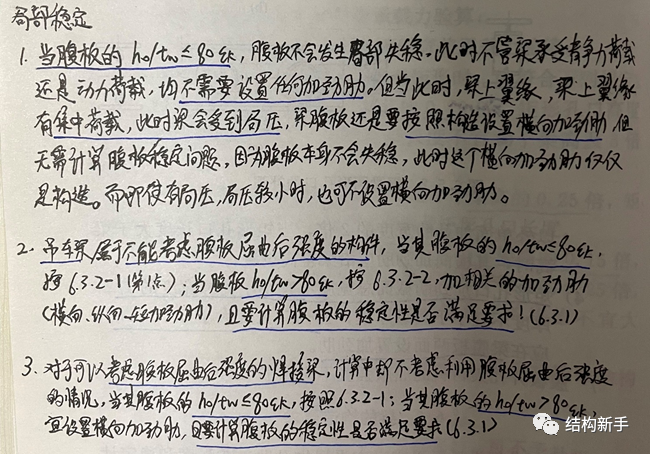 局部稳定
1. 当腹板的 h₀/tw≤80εk，腹板不会发生局部失稳。此时不管梁承受静力荷载
还是动力荷载，均不需要设置任何加劲肋。但当此时，梁上翼缘，梁上翼缘
有集中荷载，此时梁会受到局压，梁腹板还是要按照构造设置横向加劲肋，但
无需计算腹板稳定问题，因为腹板本身不会失稳，此时这个横向加劲肋仅仅
是构造。而即使有局压，局压较小时，也可不设置横向加劲肋。
2. 吊车梁属于不能考虑腹板屈曲后强度的构件，当其腹板的 h₀/tw≤80εk，
按6.3.2-1(第1点)；当腹板 h₀/tw>80εk，按 6.3.2-2，加相关的加劲肋
(横向、纵向、短加劲肋)，且要计算腹板的稳定性是否满足要求！(6.3.1)
3. 对于可以考虑腹板屈曲后强度的焊接梁，计算中却不考虑利用腹板屈曲后强度
的情况，当其腹板的 h₀/tw≤80εk，按照6.3.2-1；当其腹板的 h₀/tw>80εk，
宜设置横向加劲肋，且要计算腹板的稳定性是否满足要求(6.3.1)
结构新手